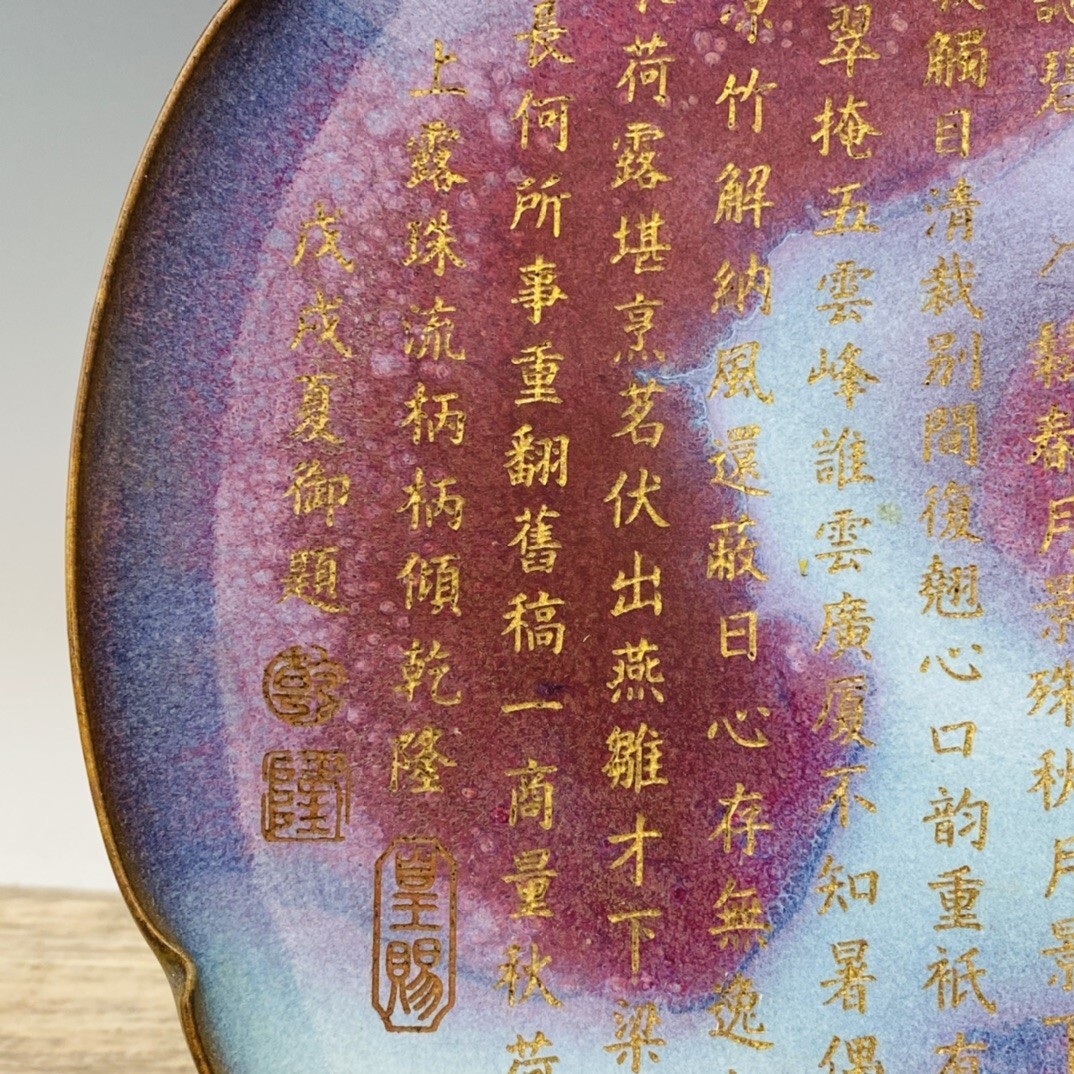 碧
鬆春月景殊秋月景
觸目清裁别間復翹心口韵重祇有
翠掩五雲峰誰雲廣厦不知暑偶
凉竹解納風還蔽日心存無逸
荷露堪烹茗伏出燕雛才下梁
長何所事重翻舊稿一商量秋荷
上露珠流柄柄傾乾隆
皇賜
戊戌夏御題
乾
隆